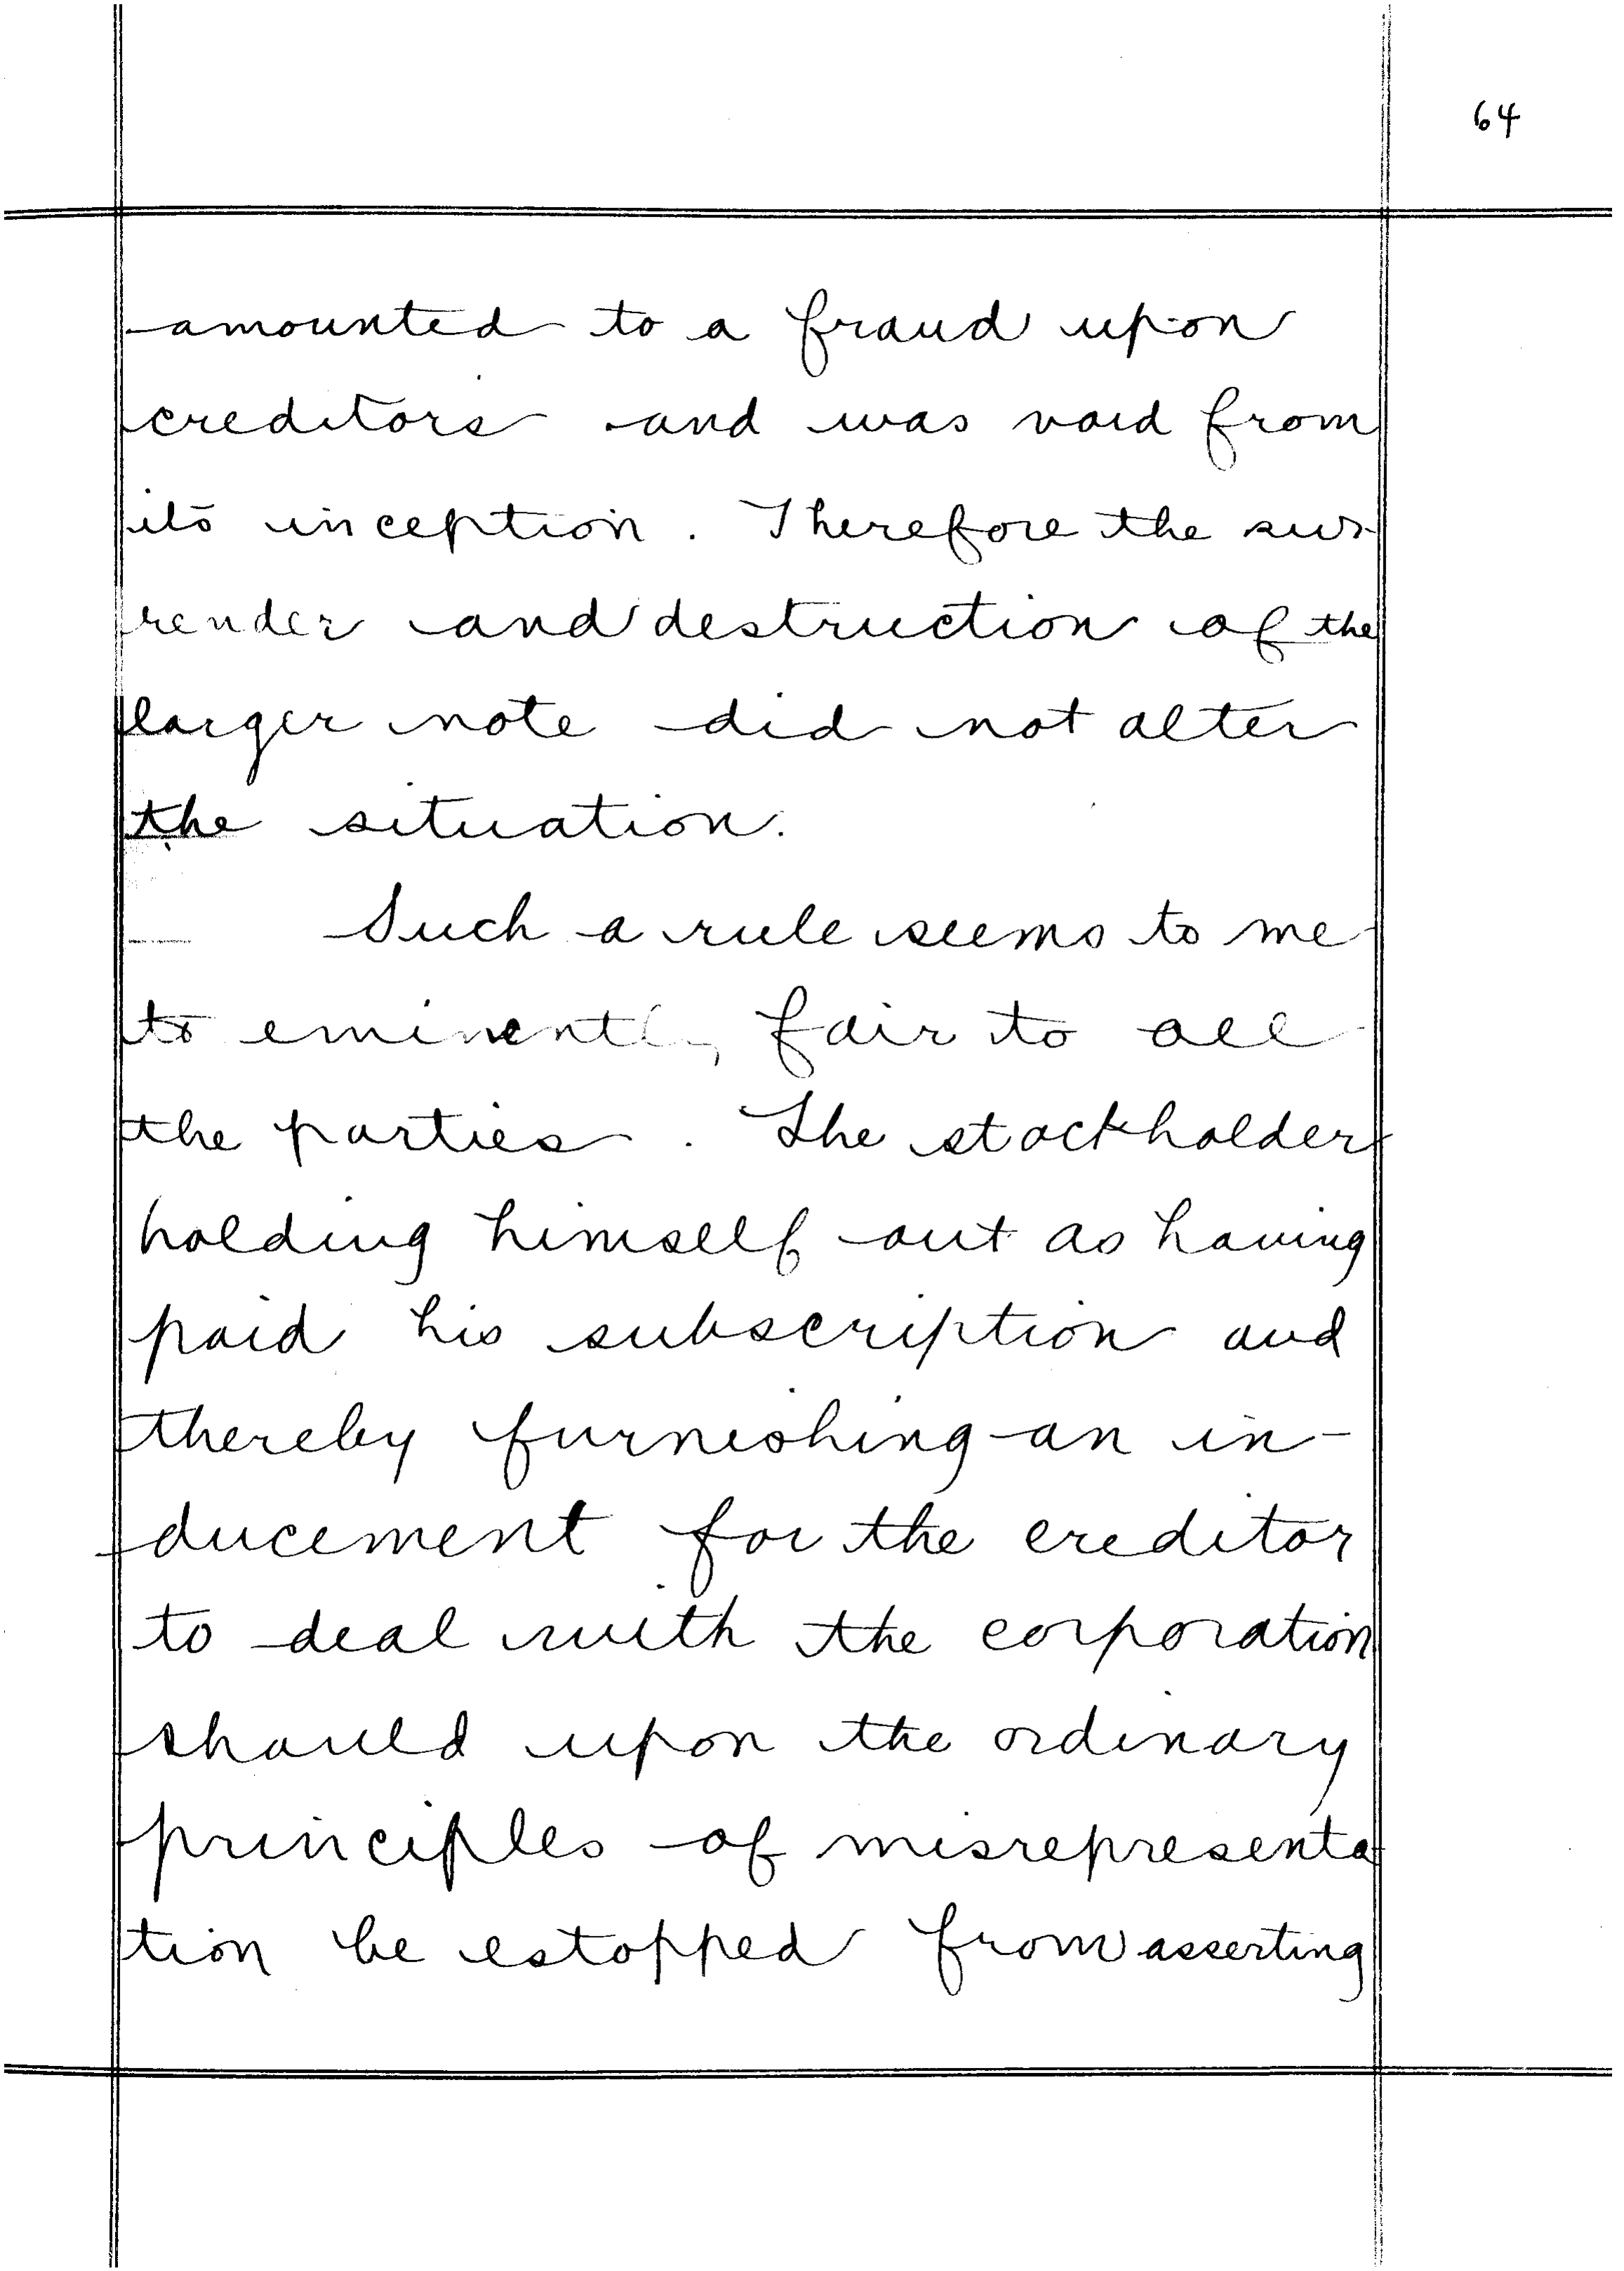 64
amounted to a fraud upon
creditors and was void from
its inception. Therefore the sur-
render and destruction of the
larger note did not alter
the situation.
Such a rule seems to me
to eminently fair to all
the parties. The stockholder
holding himself out as having
paid his subscription and
thereby furnishing an in-
ducement for the creditor
to deal with the corporation
should upon the ordinary
principles of misrepresenta
tion be estopped from asserting